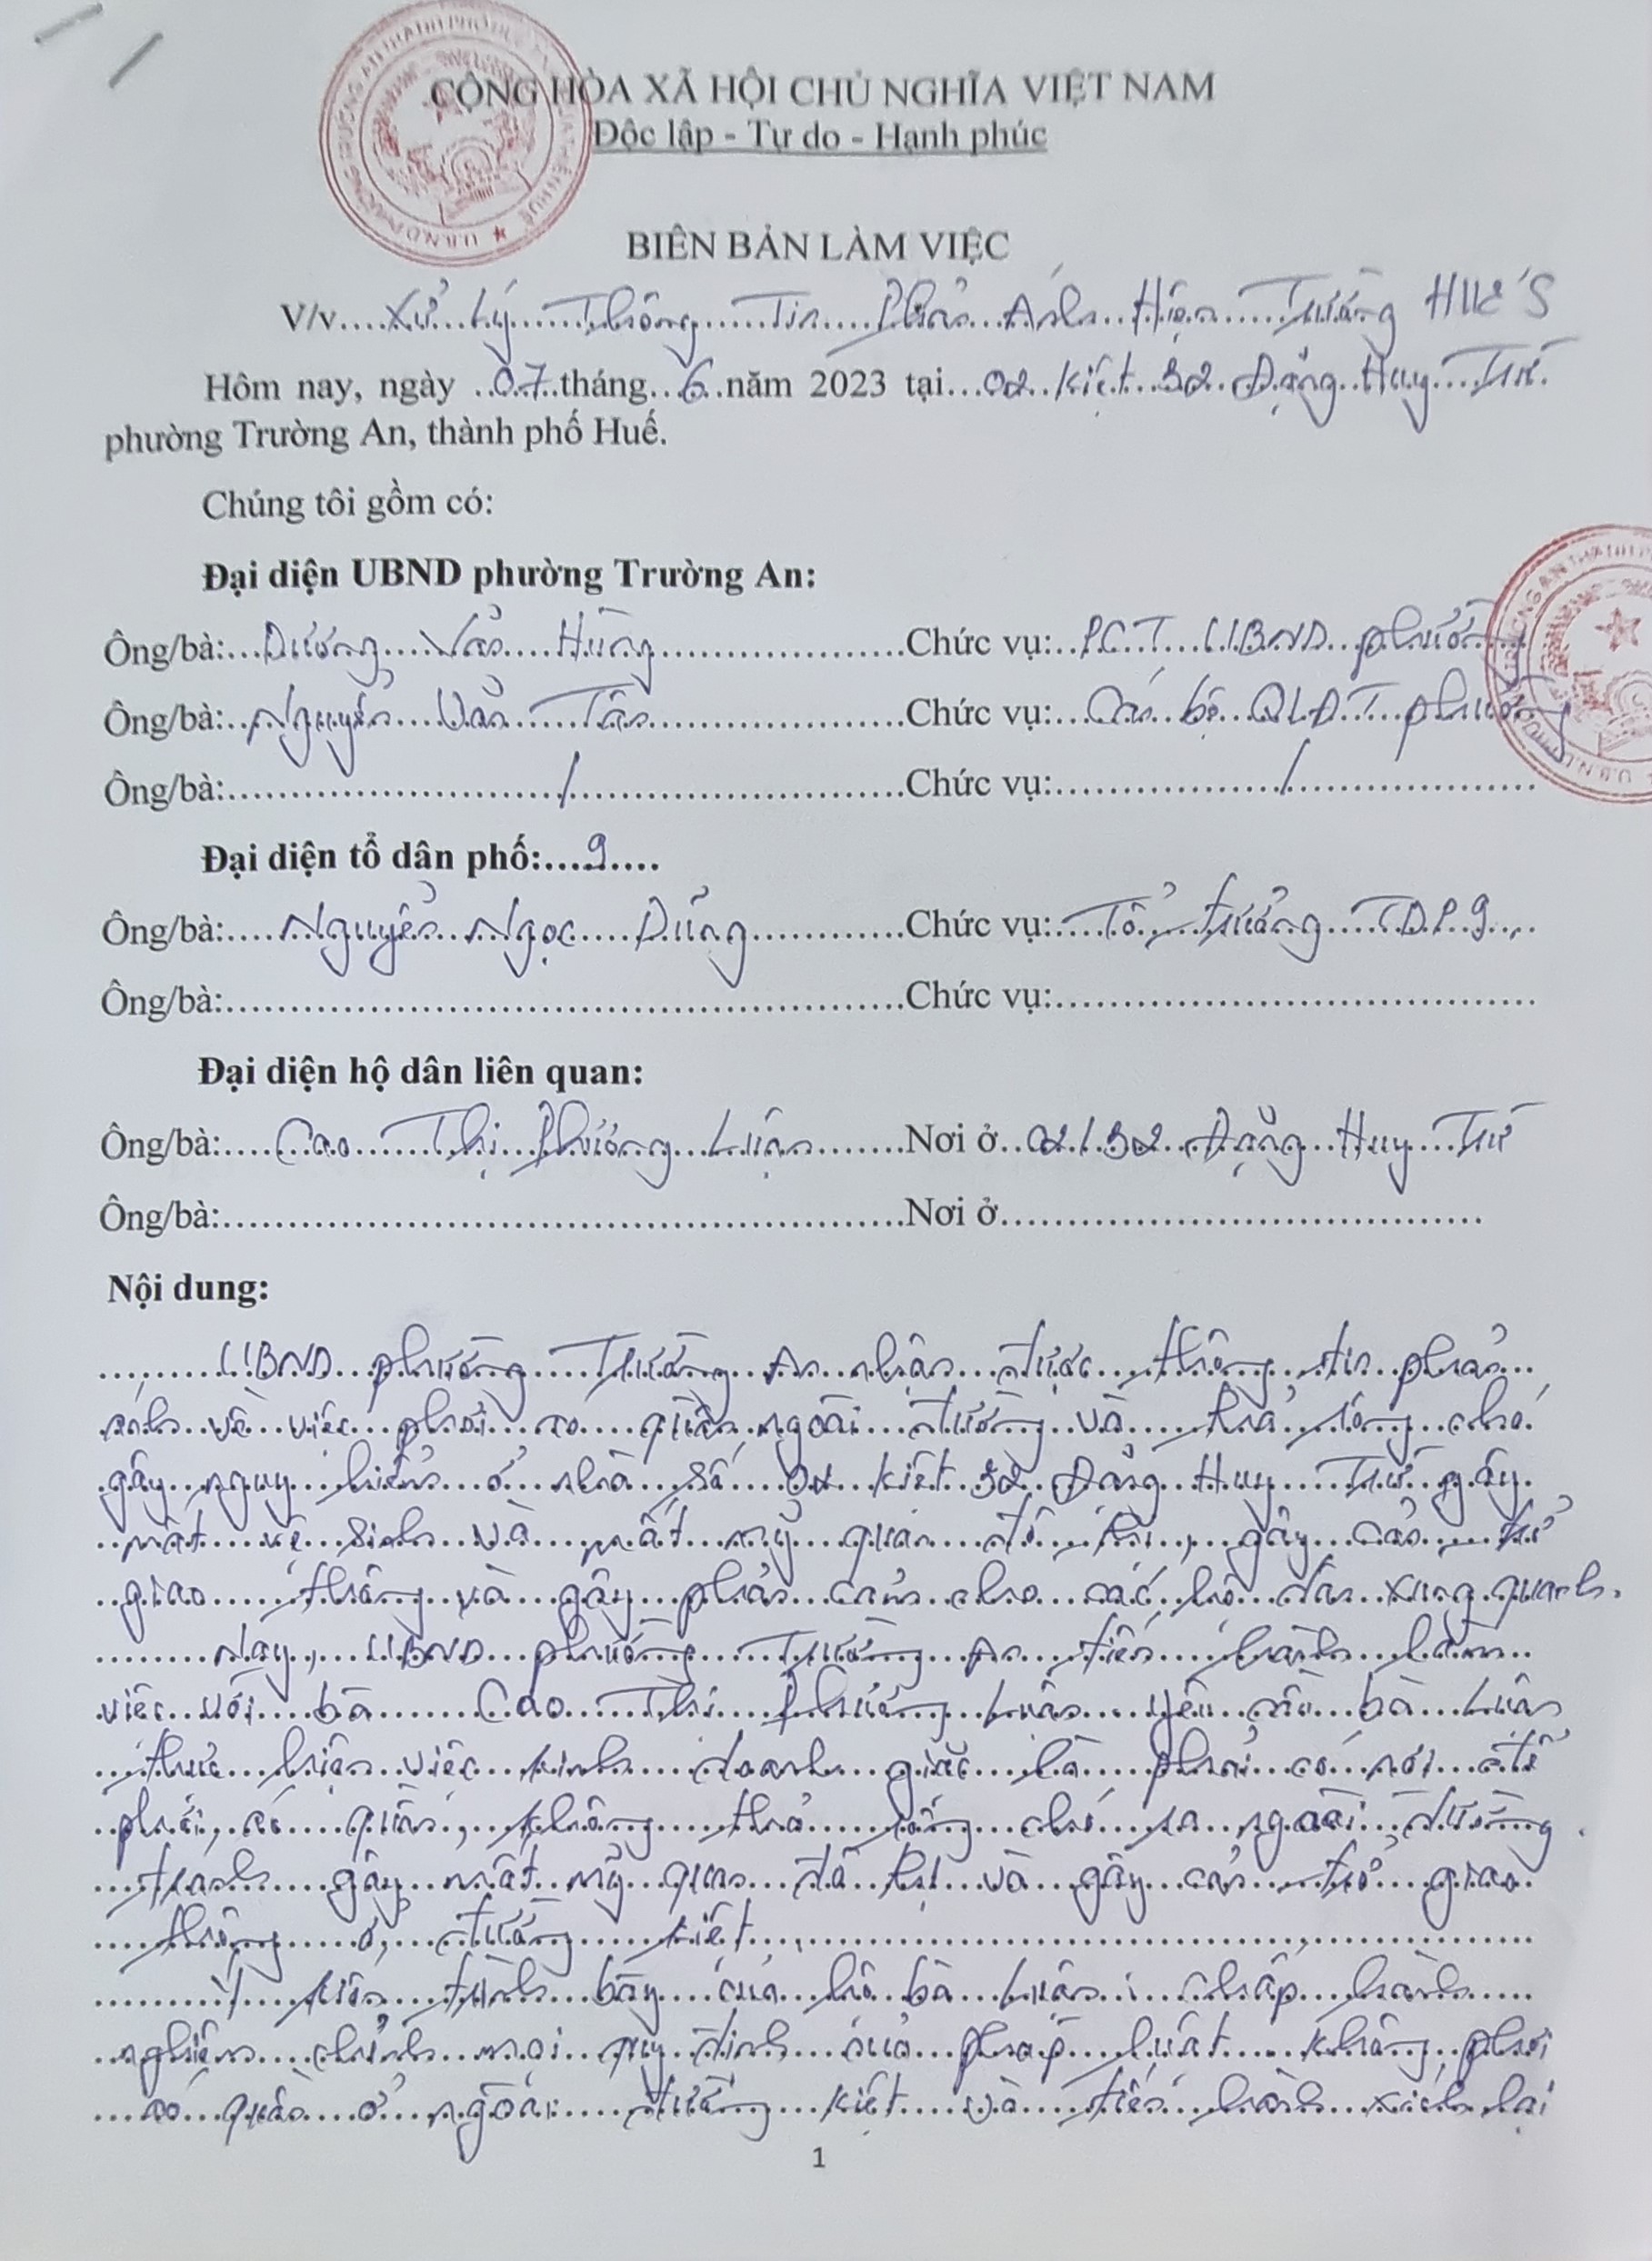 CỘNG HÒA XÃ HỘI CHỦ NGHĨA VIỆT NAM
Độc lập - Tự do - Hạnh phúc
BIÊN BẢN LÀM VIỆC
V/v....Xử lý Thông Tin Phản Ánh Hiện Trường HUẾ S
Hôm nay, ngày 07 tháng 6 năm 2023 tại 02 Kiệt 32 Đặng Huy Trứ
phường Trường An, thành phố Huế.
Chúng tôi gồm có:
Đại diện UBND phường Trường An:
Ông/bà: Dương Văn Hùng Chức vụ: PCT UBND phường
Ông/bà: Nguyễn Văn Tân Chức vụ: Cán bộ QLĐT phường
Ông/bà: / Chức vụ: /
Đại diện tổ dân phố: 9
Ông/bà: Nguyễn Ngọc Dũng Chức vụ: Tổ trưởng TDP 9
Ông/bà: Chức vụ:
Đại diện hộ dân liên quan:
Ông/bà: Cao Thị Phương Luân Nơi ở 02/32 Đặng Huy Trứ
Ông/bà: Nơi ở
Nội dung:
UBND phường Trường An nhận được thông tin phản
ánh về việc phơi áo quần ngoài đường và thả rông chó
gây nguy hiểm ở nhà số 02 kiệt 32 Đặng Huy Trứ gây
mất vệ sinh và mất mỹ quan đô thị, gây cản trở
giao thông và gây phản cảm cho các hộ dân xung quanh.
Nay, UBND phường Trường An tiến hành làm
việc với bà Cao Thị Phương Luân yêu cầu bà Luân
thực hiện việc kinh doanh giặc là phải có nơi để
phơi áo quần, không thả rông chó ra ngoài đường
tranh gây mất mỹ quan đô thị và gây cản trở giao
thông ở đường kiệt.
Ý kiến trình bày của hộ bà Luân: Chấp hành
nghiêm chỉnh mọi quy định của pháp luật. Không phơi
áo quần ở ngoài đường kiệt và tiến hành xích lại
1